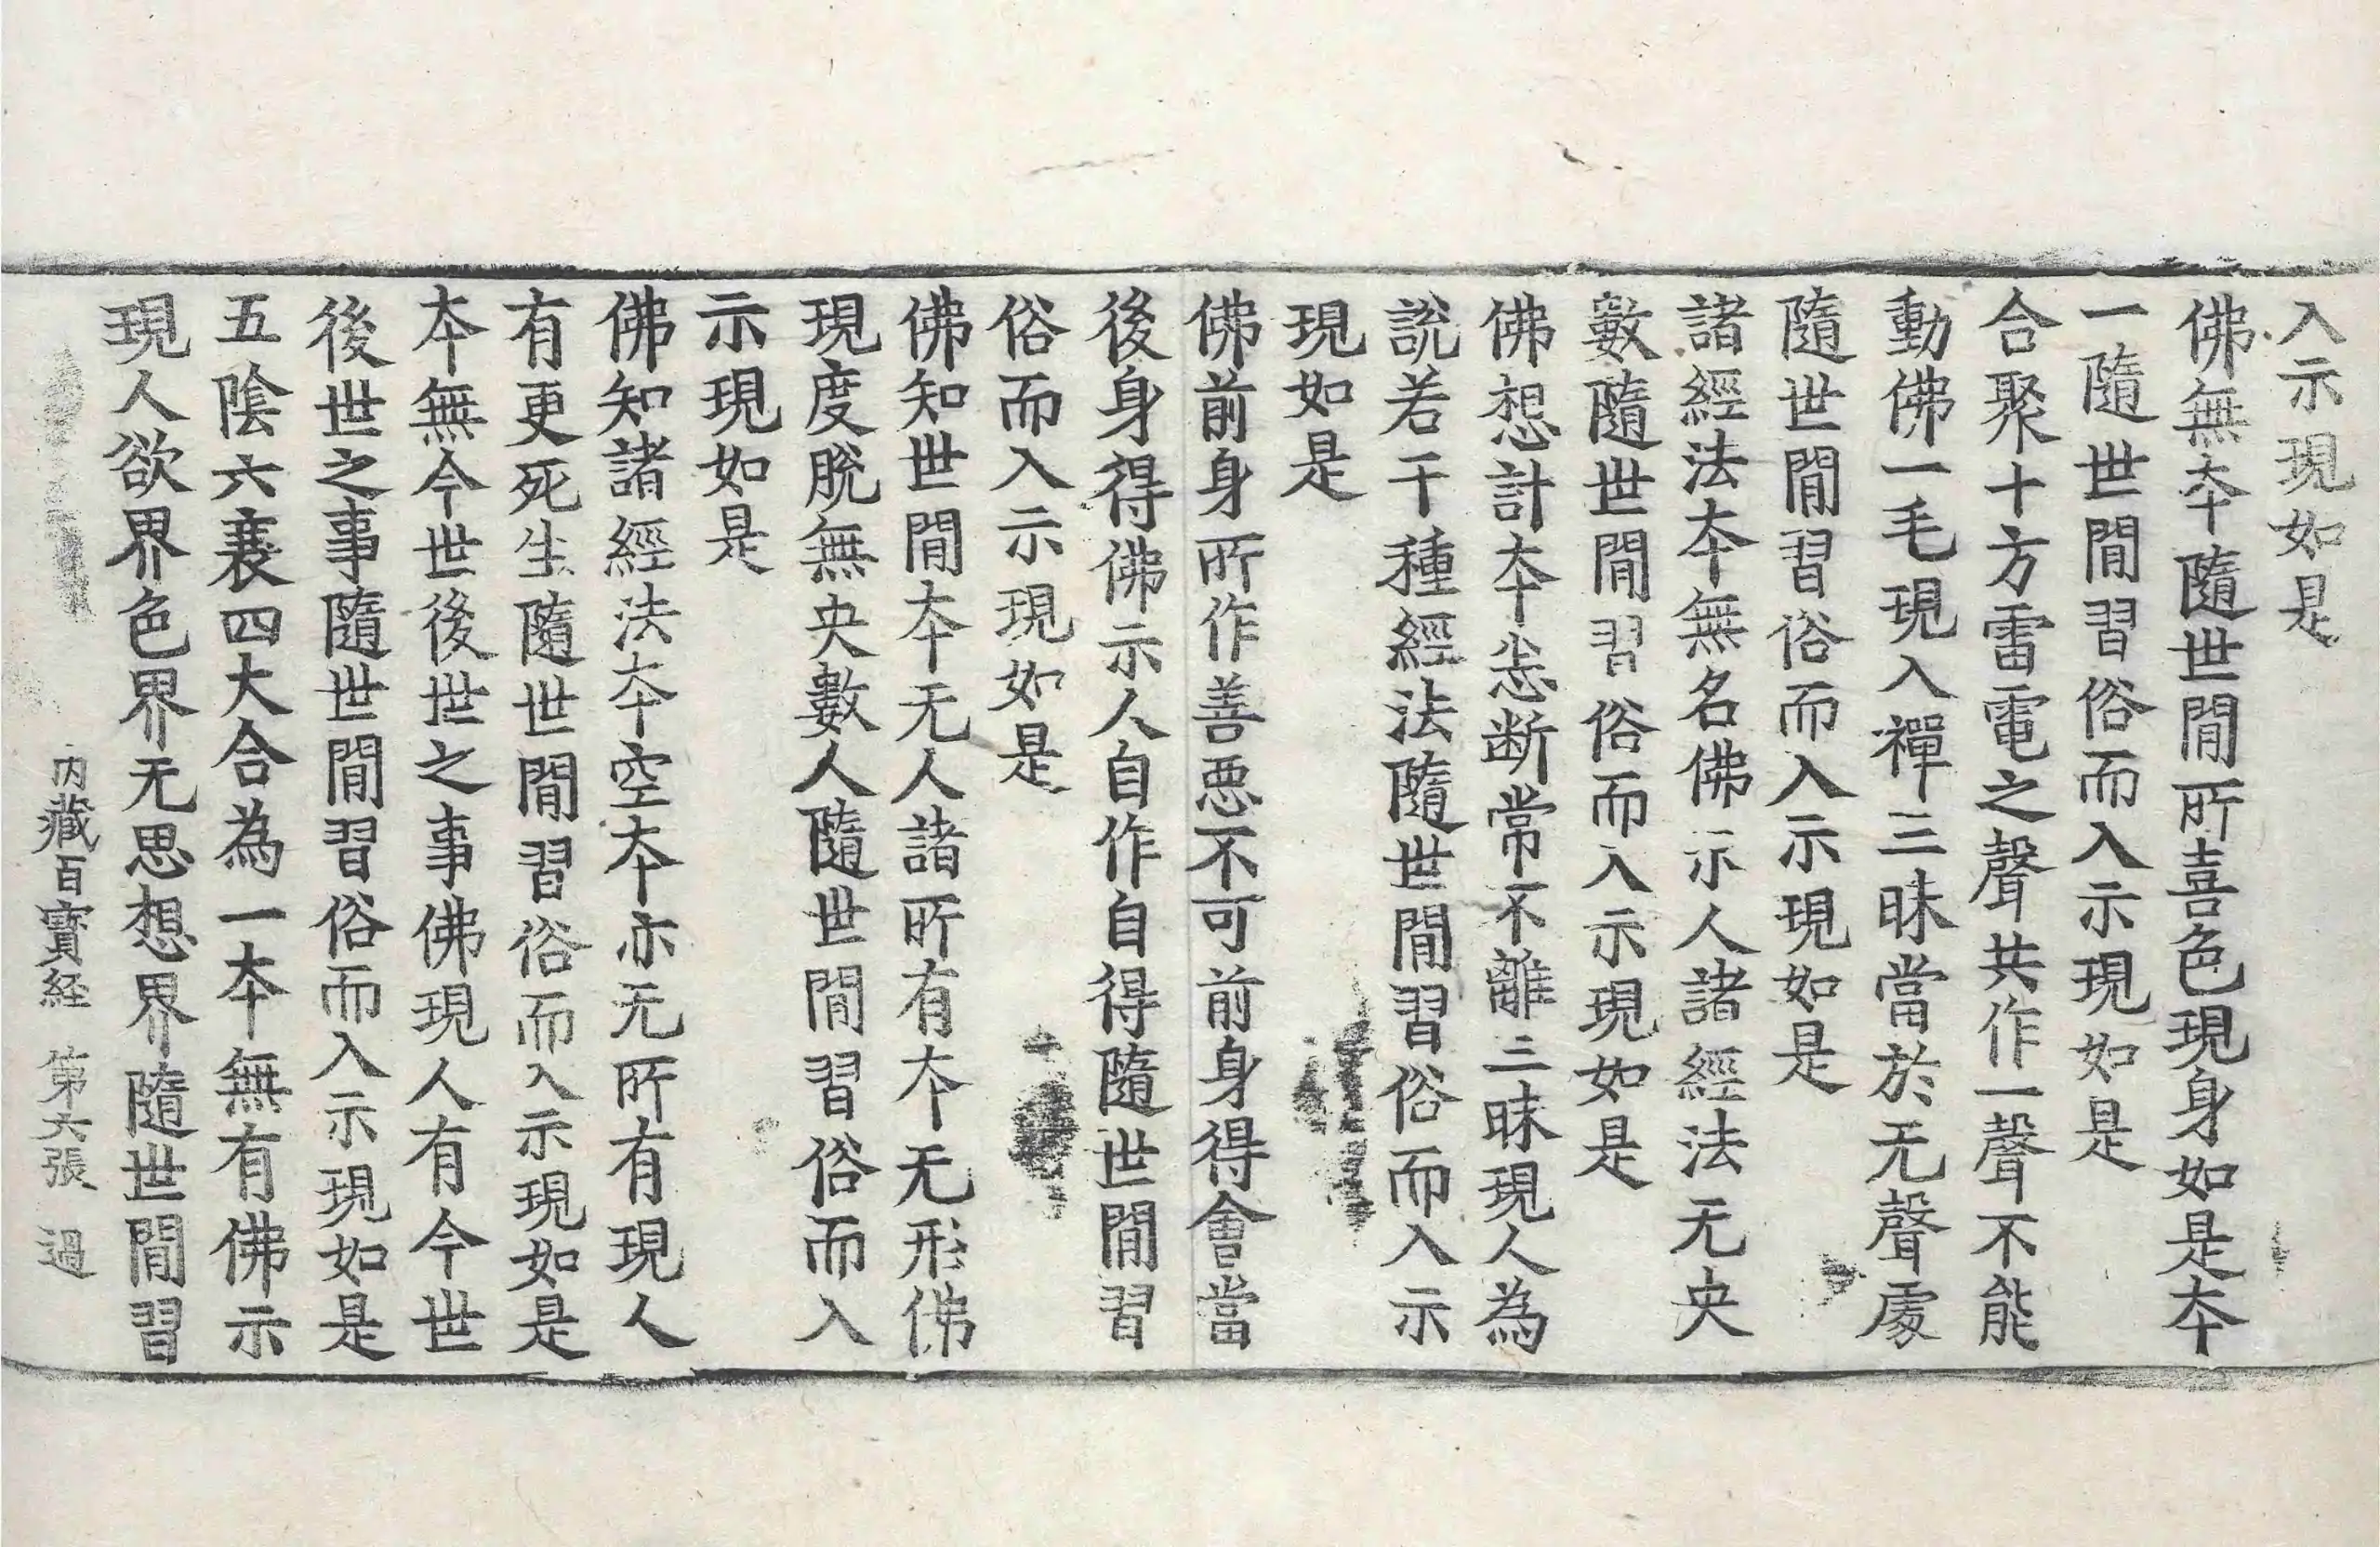 入示現如是
佛無夲隨世閒所喜色現身如是夲
一隨世閒習俗而入示現如是
合聚十方雷電之聲共作一聲不能
動佛一毛現入禪三昧當於无聲䖏
隨世閒習俗而入示現如是
諸經法夲無名佛示人諸經法无央
數隨世閒習俗而入示現如是
佛想計夲悉断常不離三昧現人為
說若干種經法隨世閒習俗而入示
現如是
佛前身所作善惡不可前身得會當
後身得佛示人自作自得隨世閒習
俗而入示現如是
佛知世閒夲无人諸所有夲无形佛
現度脫無央數人隨世閒習俗而入
示現如是
佛知諸經法夲空夲亦无所有現人
有更死生隨世閒習俗而入示現如是
夲無今世後世之事佛現人有今世
後世之事隨世閒習俗而入示現如是
五陰六衰四大合為一夲無有佛示
現人欲界色界无思想界隨世閒習
内藏百寶経 第六張 過